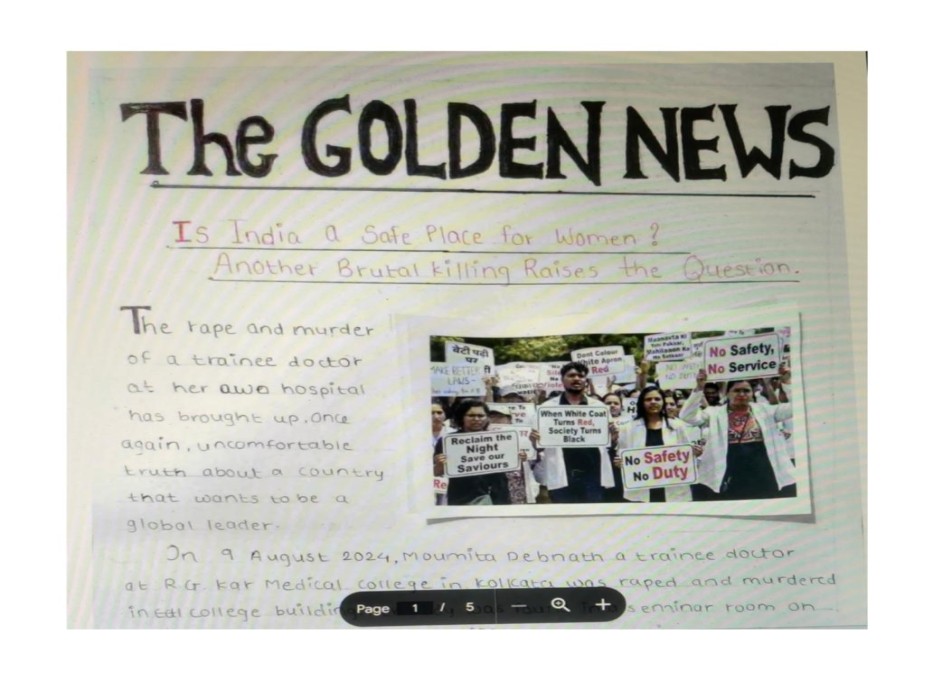 The GOLDEN NEWS
Is India a Safe Place for Women?
Another Brutal killing Raises the Question.
The rape and murder
of a trainee doctor
at her awo hospital
has brought up, Once
again, uncomfortable
truth about a country
that wants to be a
global leader.
बेटी पढ़ी
पर
MAKE BETTER
LAWS-
Dont Colour
White Apron
Red
No Safety,
No Service
When White Coat
Turns Red,
Society Turns
Black
Reclaim the
Night
Save our
Saviours
No Safety
No Duty
Re
In 9 August 2024, Moumita Debnath a trainee doctor
at R.G. Kar Medical College in Kolkata was raped and murdered
in college building seminar room on
Page 1 / 5